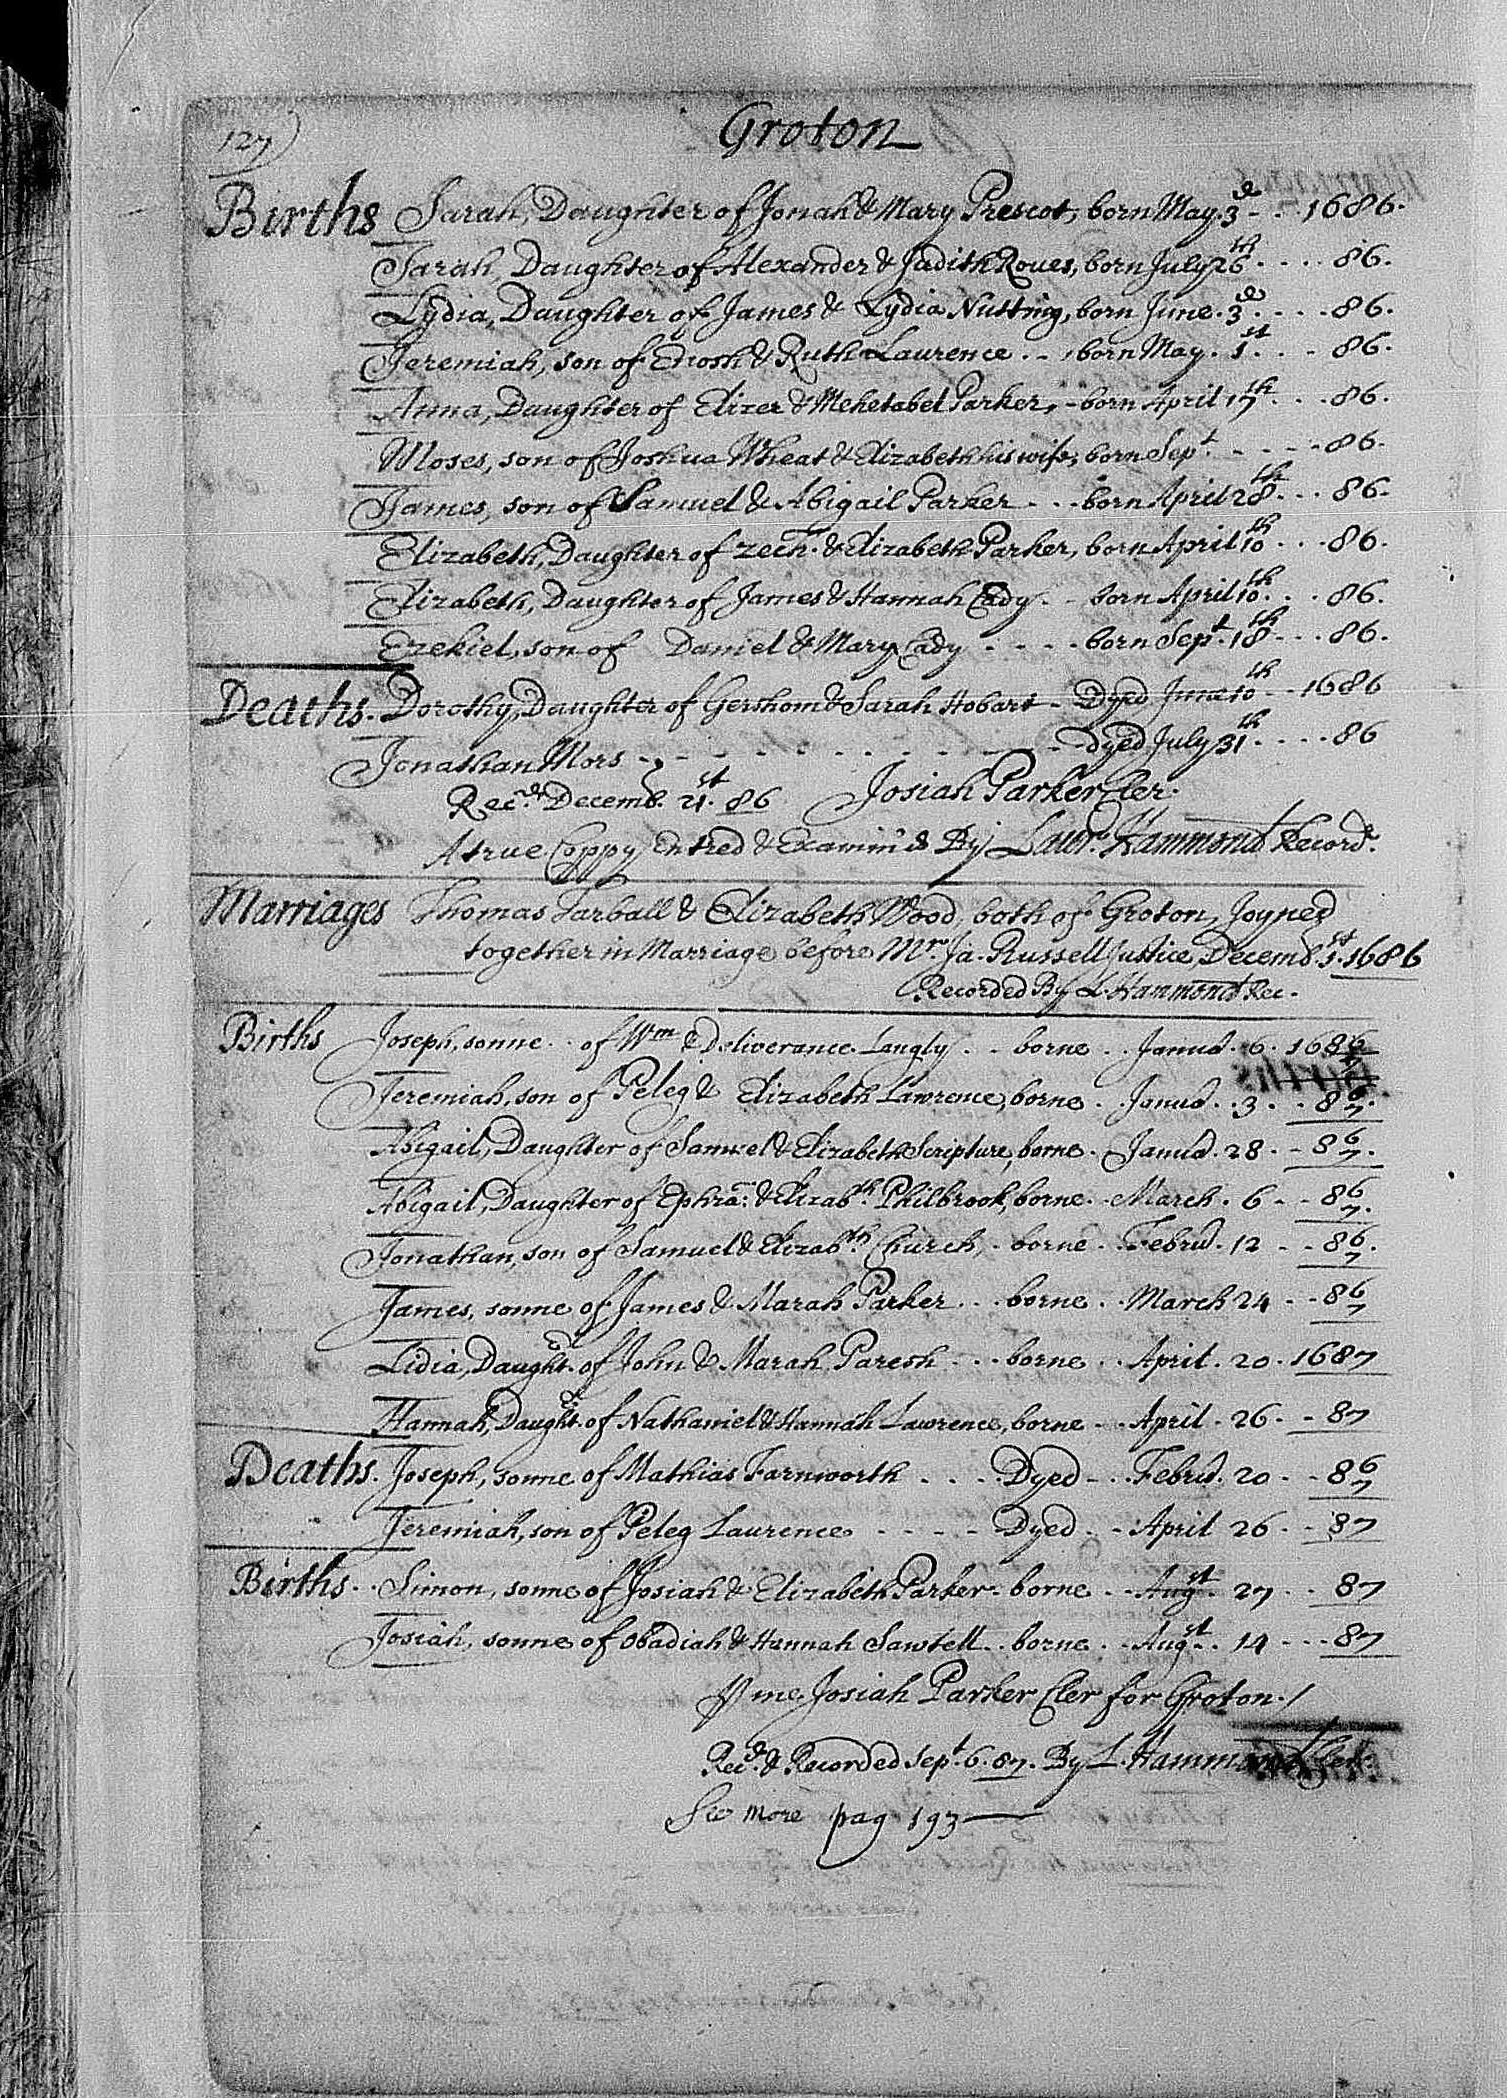 127)
Groton
Births Sarah, Daughter of Jonah & Mary Prescot, born May. 3d - . . 1686.
Sarah, Daughter of Alexander & Judith Roues, born July 26th . . . . 86.
Lydia, Daughter of James & Lydia Nutting, born June. 3d . . . . 86.
Jeremiah, son of Enosh & Ruth Laurence . - , born May. 1st . . . 86.
Anna, Daughter of Elizer & Mehetabel Parker, - born April 17th . . . 86.
Moses, son of Joshua Wheat & Elizabeth his wife, born Sept - - - - 86.
James, son of Samuel & Abigail Parker . . . born April 28th . . . 86.
Elizabeth, Daughter of Zech: & Elizabeth Parker, born April 10th . . . 86.
Elizabeth, Daughter of James & Hannah Cady . - born April 10th . . . 86.
Ezekiel, son of Daniel & Mary Cady . . . . born Sept. 18th - . . 86.
Deaths. Dorothy, Daughter of Gershom & Sarah Hobart - Dyed June 10th - . . 1686
Jonathan Mors - - - - - - - - - - - Dyed July 31th . . . . 86
Recd. Decemb. 21st. 86 Josiah Parker Cler.
A true Coppy Entred & Examin'd By Lawr. Hammond Record.
Marriages Thomas Tarball & Elizabeth Wood, both of Groton, Joyned
together in Marriage before Mr. Ja. Russell Justice, Decemb. 1st. 1686
Recorded By L. Hammond Rec.
Births Joseph, sonne . . of Wm & Deliverance Langly . . borne . . Janua. 6. 1686/7
Jeremiah, son of Peleg & Elizabeth Lawrence, borne . Janua. . 3 . . 86/7.
Abigail, Daughter of Samuel & Elizabeth Scripture, borne . Janua. 28 . - 86/7.
Abigail, Daughter of Ephra: & Elizabth. Philbrook, borne . . March. 6 - - 86/7.
Jonathan, son of Samuel & Elizabth. Church, . borne . . Febru. 12 - - 86/7.
James, sonne of James & Marah Parker . . . borne . . March 24 - - 86/7
Lidia, Daught. of John & Marah Paresh . . . borne . . April. 20 . 1687
Hannah, Daught. of Nathaniel & Hannah Lawrence, borne . . April. 26 . - 87
Deaths. Joseph, sonne of Mathias Farnworth . . . . Dyed - . . Febru. 20 . . 86/7
Jeremiah, son of Peleg Laurence . - - - - Dyed . . April 26 . - 87
Births . . Simon, sonne of Josiah & Elizabeth Parker . borne . . Augst. 27 . . 87
Josiah, sonne of Obadiah & Hannah Sawtell . . borne . . Augst. . 14 - - - 87
P me Josiah Parker Cler for Groton. /
Recd. & Recorded Sept. 6. 87. By L. Hammond
See more pag 193